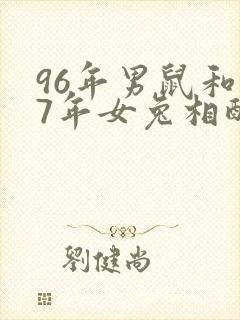 96年男鼠和
7年女兔相配
劉健尚